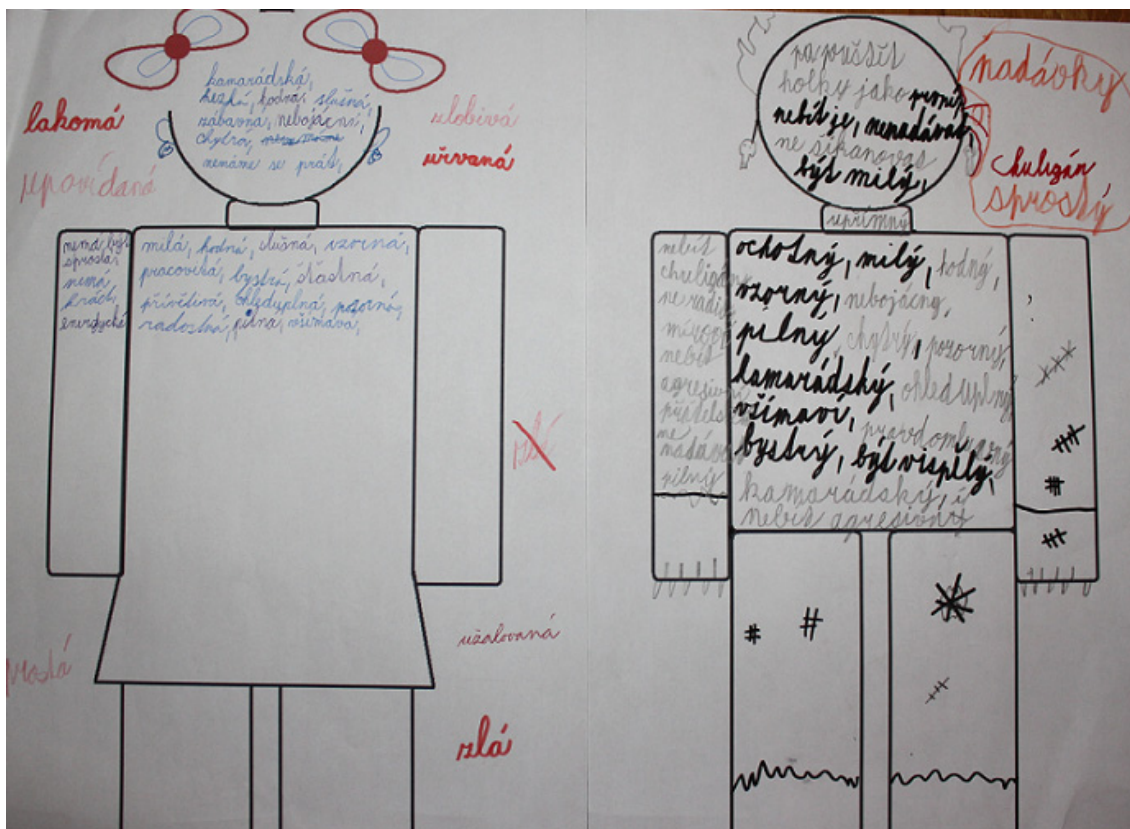 kamarádská,
hezká, hodná, slušná,
zábavná, nebojácná,
chytrá,
nemáme se prát,
lakomá
upovídaná
zlobivá
uřvaná
nemá být
sprostá,
nemá
krást,
energycká
milá, hodná, slušná, vzorná,
pracovitá, bystrá, šťastná,
přívětivá, ohleduplná, pozorná,
radostná, pilná, všímavá,
zlá
užalovaná
zlá
popouštět
holky jako první,
nebít je, nenadávat,
ne šikanovat
být milý,
nadávky
chuligán,
sprostý
upřímný
nebít
chuligán
nebít
agresivní
ne
nadávat
pilný
ochotný, milý, hodný,
vzorný, nebojácný,
pilný, chytrý, pozorný,
kamarádský, ohleduplný,
všímaví, pravdomluvný
bystrý, být vispělý,
kamarádský, ý
nebít agresivní